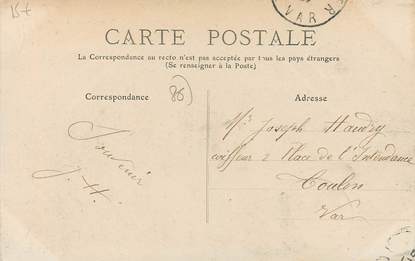 15+
VAR
CARTE POSTALE
La Correspondance au recto n'est pas acceptée par tous les pays étrangers
(Se renseigner à la Poste)
Correspondance
86
Adresse
Souvenir
J. H.
Mr Joseph Haudry
coiffeur 2 Place de l'Intendance
Toulon
Var